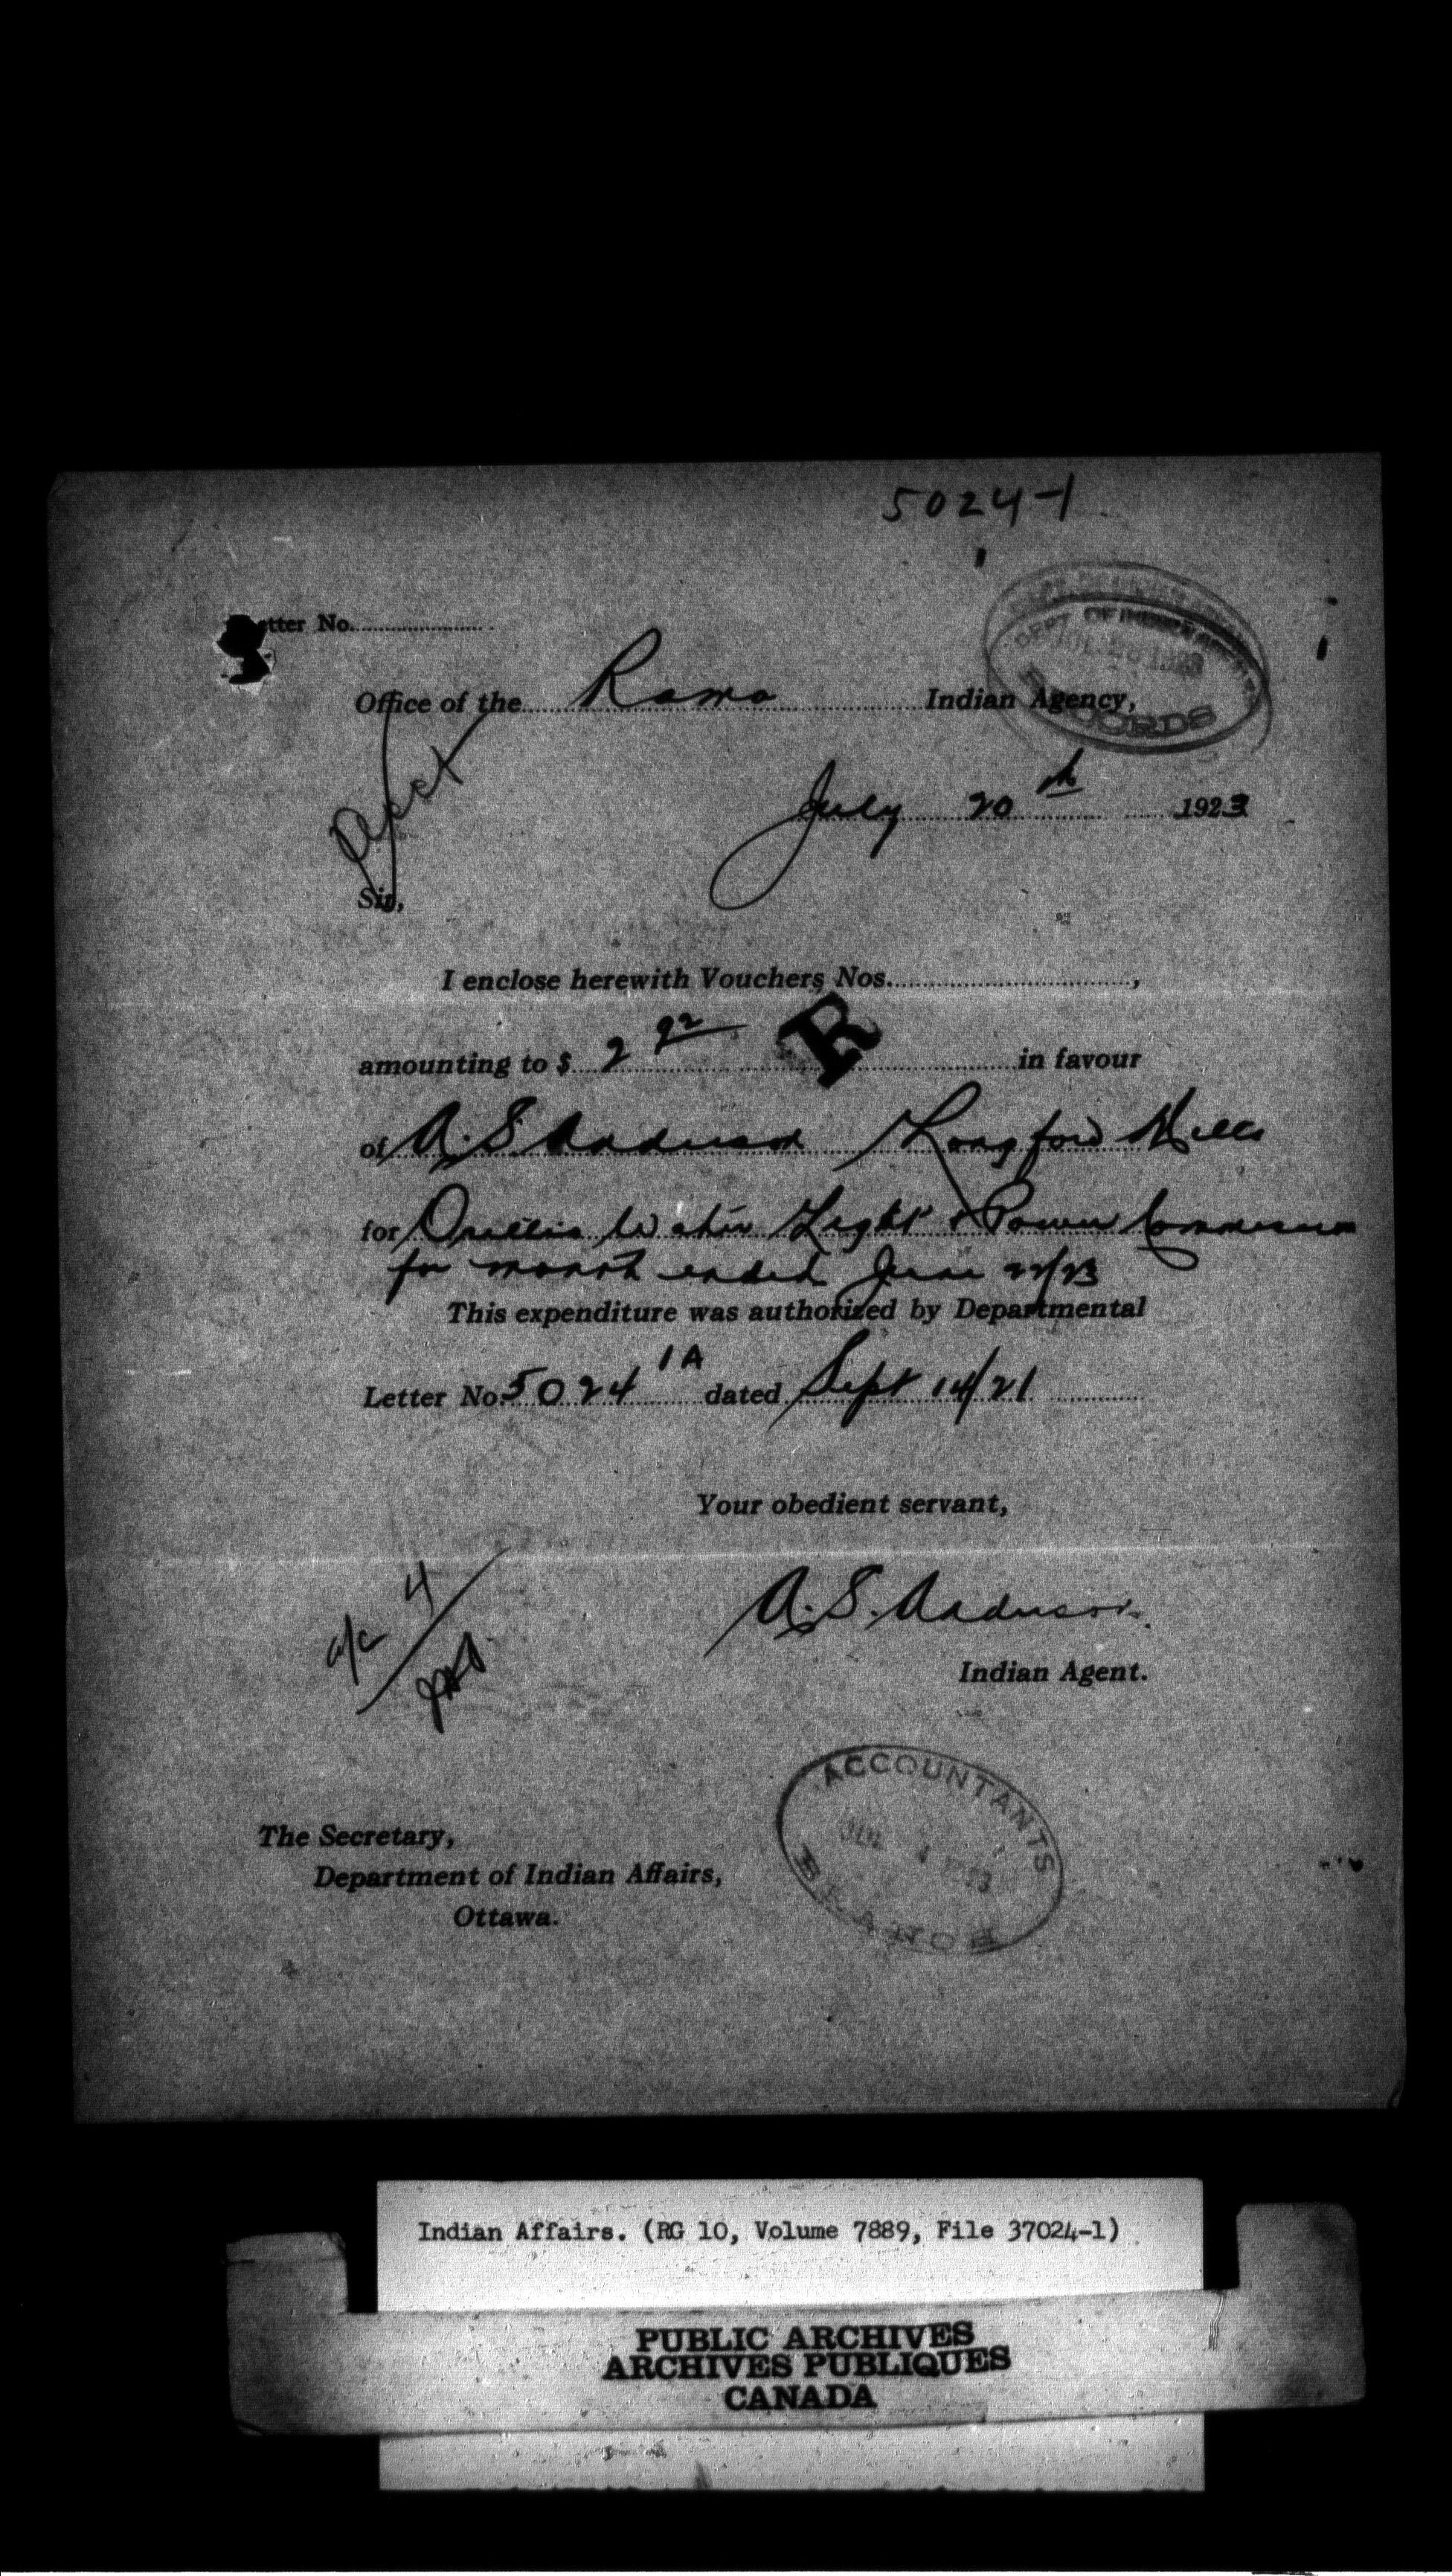 5024-1
Letter No.
DEPT. OF INDIAN AFFAIRS
RECORDS
Office of the Rama Indian Agency,
July 20th 1923
Sir,
I enclose herewith Vouchers Nos. ,
amounting to $ 2 92 R in favour
of A. S. Anderson Longford Mills
for Orillia Water Light & Power Commission
for month ended June 22/23
This expenditure was authorized by Departmental
Letter No. 5024 1A dated Sept 14/21
Your obedient servant,
a/c 4
A. S. Anderson
Indian Agent.
ACCOUNTANTS
BRANCH
The Secretary,
Department of Indian Affairs,
Ottawa.
Indian Affairs. (RG 10, Volume 7889, File 37024-1)
PUBLIC ARCHIVES
ARCHIVES PUBLIQUES
CANADA